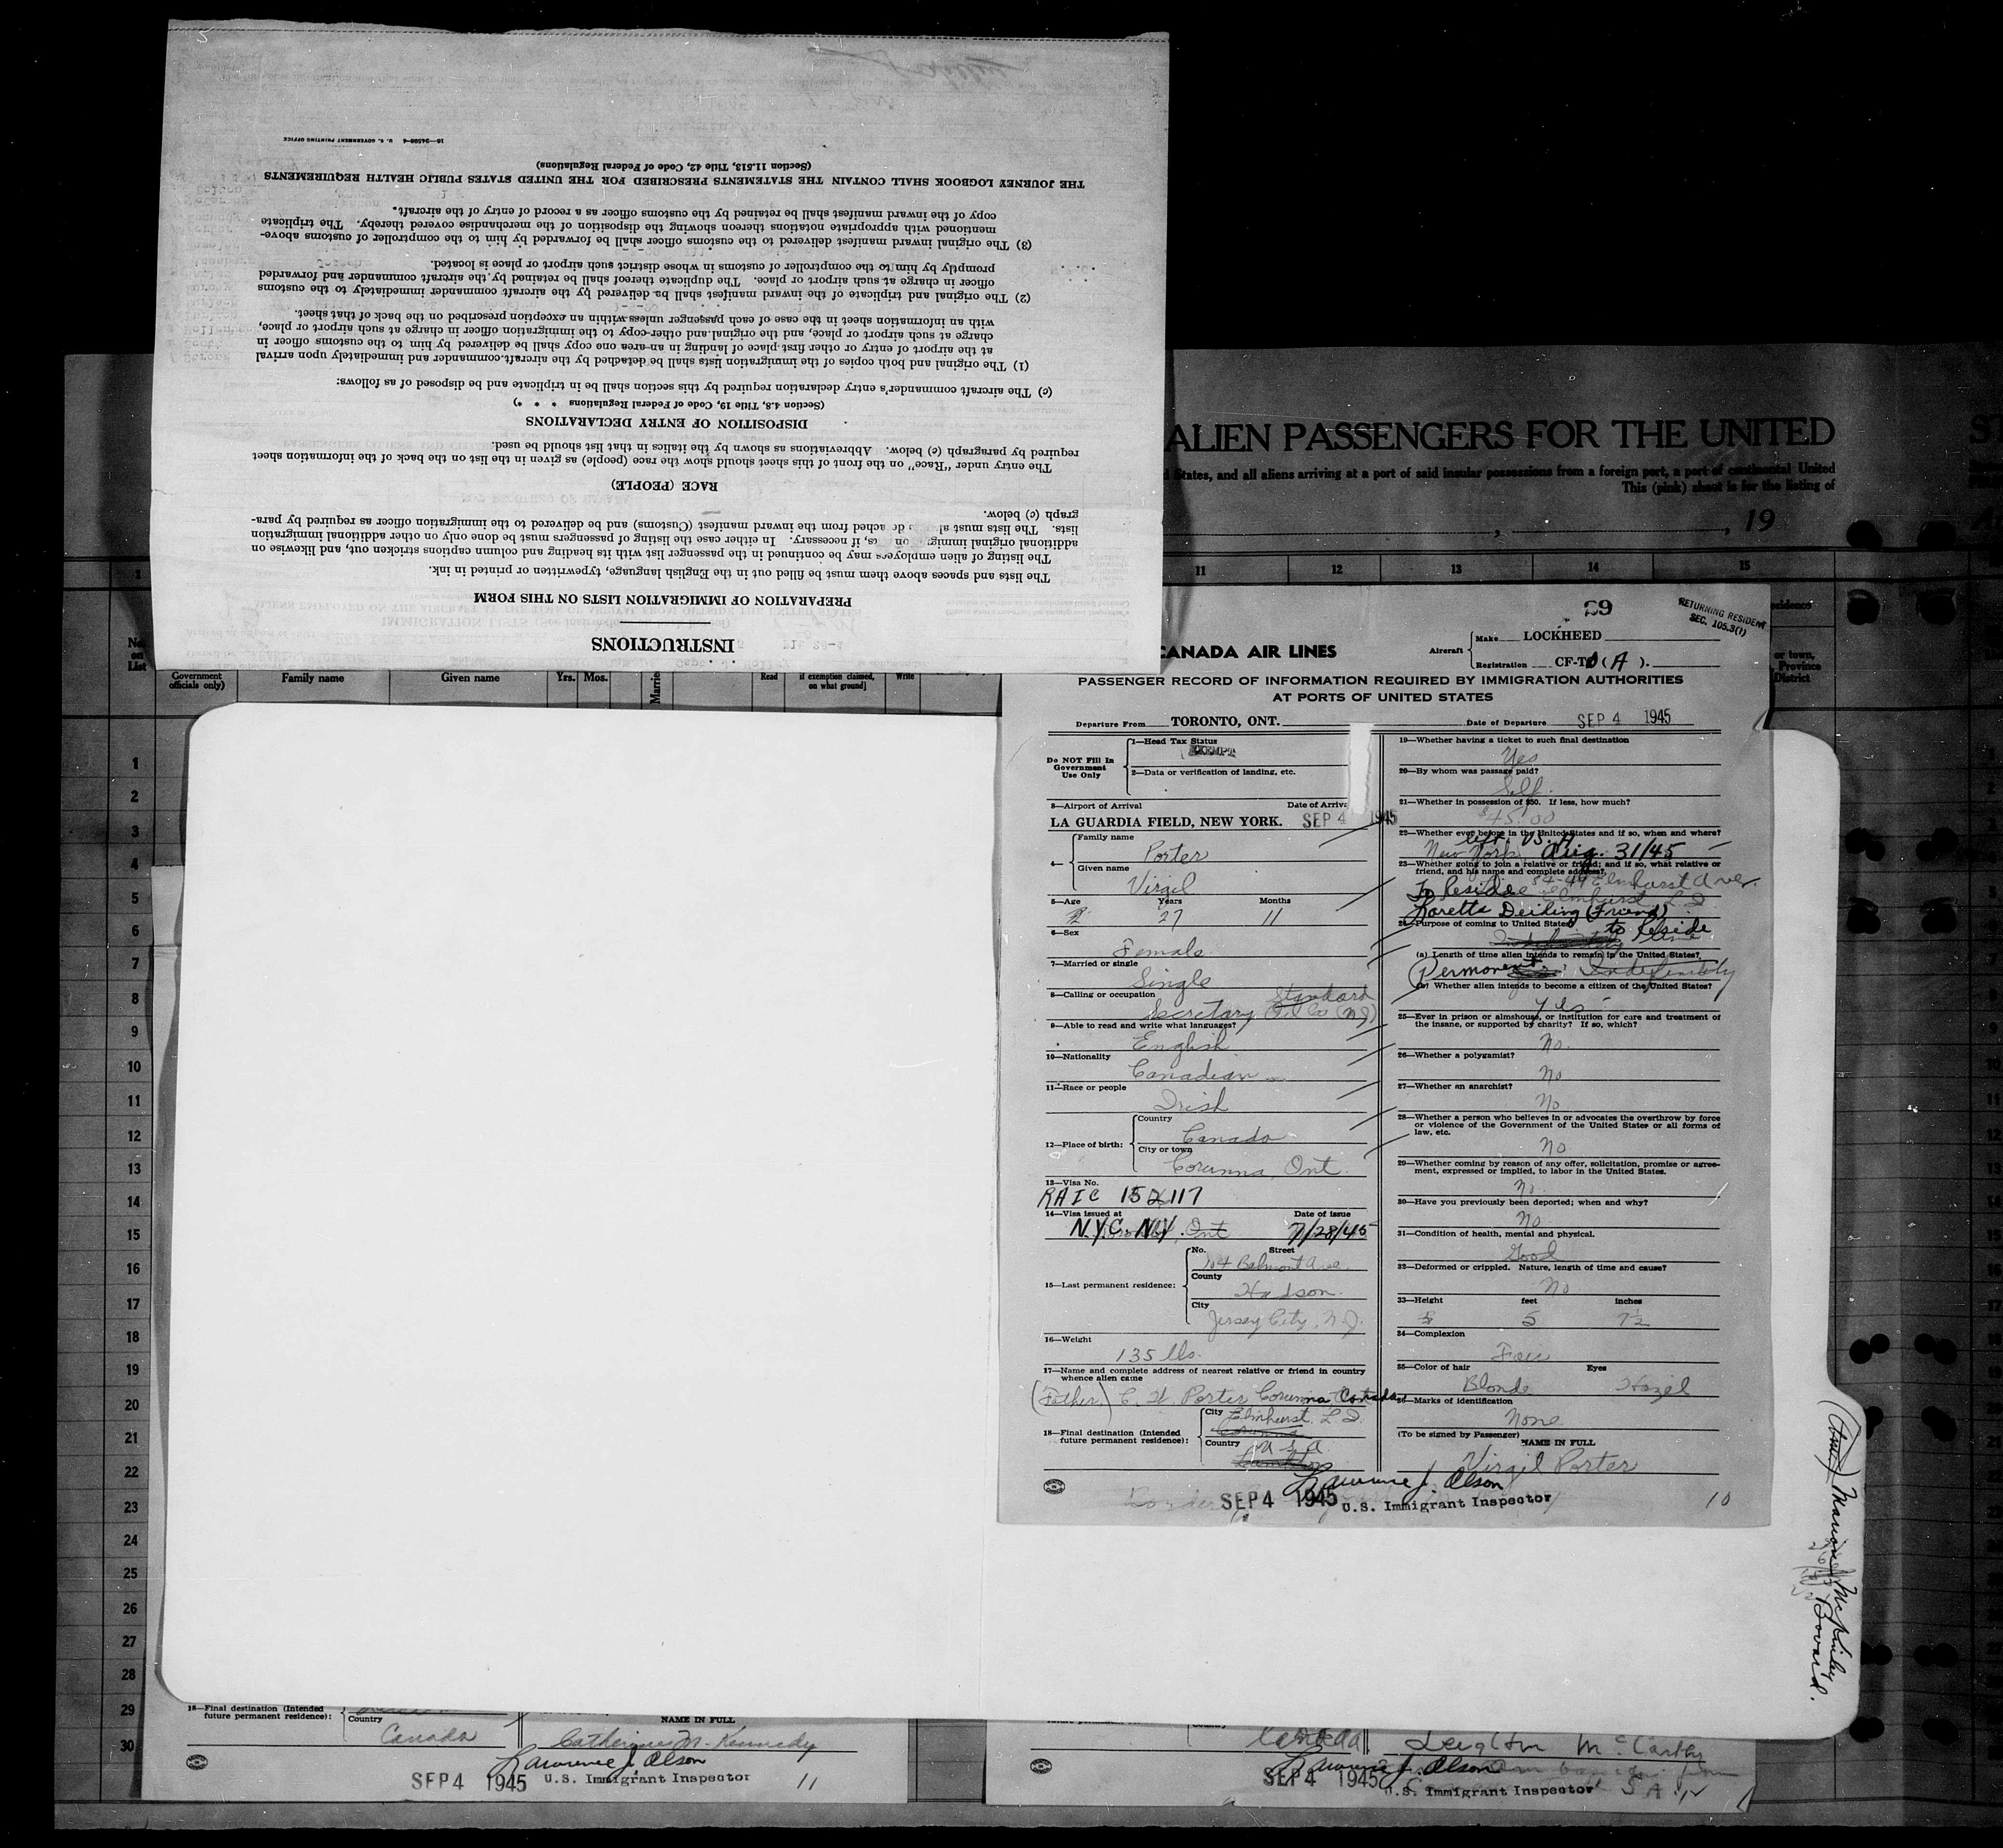 INSTRUCTIONS
PREPARATION OF IMMIGRATION LISTS ON THIS FORM
The lists and spaces above them must be filled out in the English language, typewritten or printed in ink.
The listing of alien employees may be continued in the passenger list with its heading and column captions stricken out, and likewise on
additional original immig on s, if necessary. In either case the listing of passengers must be done only on other additional immigration
lists. The lists must al de ached from the inward manifest (Customs) and be delivered to the immigration officer as required by para-
graph (c) below.
RACE (PEOPLE)
The entry under "Race" on the front of this sheet should show the race (people) as given in the list on the back of the information sheet
required by paragraph (c) below. Abbreviations as shown by the italics in that list should be used.
DISPOSITION OF ENTRY DECLARATIONS
(Section 4.8, Title 19, Code of Federal Regulations * * *)
(c) The aircraft commander's entry declaration required by this section shall be in triplicate and be disposed of as follows:
(1) The original and both copies of the immigration lists shall be detached by the aircraft commander and immediately upon arrival
at the airport of entry or other first place of landing in an area one copy shall be delivered by him to the customs officer in
charge at such airport or place, and the original and other copy to the immigration officer in charge at such airport or place,
with an information sheet in the case of each passenger unless within an exception prescribed on the back of that sheet.
(2) The original and triplicate of the inward manifest shall be delivered by the aircraft commander immediately to the customs
officer in charge at such airport or place. The duplicate thereof shall be retained by the aircraft commander and forwarded
promptly by him to the comptroller of customs in whose district such airport or place is located.
(3) The original inward manifest delivered to the customs officer shall be forwarded by him to the comptroller of customs above-
mentioned with appropriate notations thereon showing the disposition of the merchandise covered thereby. The triplicate
copy of the inward manifest shall be retained by the customs officer as a record of entry of the aircraft.
THE JOURNEY LOGBOOK SHALL CONTAIN THE STATEMENTS PRESCRIBED FOR THE UNITED STATES PUBLIC HEALTH REQUIREMENTS
(Section 11.513, Title 42, Code of Federal Regulations)
16—34508-4 U. S. GOVERNMENT PRINTING OFFICE
ALIEN PASSENGERS FOR THE UNITED
States, and all aliens arriving at a port of said insular possessions from a foreign port, a port of continental United
This (pink) sheet is for the listing of
, 19
11 12 13 14 15
No. on List
Government officials only)
Family name
Given name
Yrs. Mos.
Read
if exemption claimed, on what ground]
Write
or town, Province District
1
2
3
4
5
6
7
8
9
10
11
12
13
14
15
16
17
18
19
20
21
22
23
24
25
26
27
28
29
30
29
RETURNING RESIDENT
SEC. 105.3(1)
CANADA AIR LINES
Aircraft
Make LOCKHEED
Registration CF-T (A).
PASSENGER RECORD OF INFORMATION REQUIRED BY IMMIGRATION AUTHORITIES
AT PORTS OF UNITED STATES
Departure From TORONTO, ONT.
Date of Departure SEP 4 1945
Do NOT Fill In Government Use Only
1—Head Tax Status
EXEMPT
2—Data or verification of landing, etc.
3—Airport of Arrival Date of Arriva
LA GUARDIA FIELD, NEW YORK. SEP 4 1945
4— Family name
Porter
Given name
Virgil
5—Age Years Months
27 11
6—Sex
Female
7—Married or single
Single
8—Calling or occupation
Secretary Standard Oil Co (NJ)
9—Able to read and write what languages?
English
10—Nationality
Canadian
11—Race or people
Irish
12—Place of birth:
Country
Canada
City or town
Corunna, Ont.
13—Visa No.
RAIC 152117
14—Visa issued at Date of issue
N.Y.C. N.Y. Ont 7/28/45
15—Last permanent residence:
No. Street
104 Belmont Ave.
County
Hudson
City
Jersey City, N.J.
16—Weight
135 lbs.
17—Name and complete address of nearest relative or friend in country
whence alien came
(Father) C. W. Porter Corunna Canada
18—Final destination (Intended
future permanent residence):
City Elmhurst. L.I.
Corunna
Country
U S A
Lambton
19—Whether having a ticket to such final destination
Yes
20—By whom was passage paid?
Self.
21—Whether in possession of $50. If less, how much?
$45.00
22—Whether ever before in the United States and if so, when and where?
left U.S.A.
New York Aug. 31/45
23—Whether going to join a relative or friend; and if so, what relative or
friend, and his name and complete address?
To Reside 54-44 Elmhurst Ave.
Elmhurst L.I.
Loretta Deibing (Friend)
24—Purpose of coming to United States?
to Reside
(a) Length of time alien intends to remain in the United States?
Permanent Indefinitely
(b) Whether alien intends to become a citizen of the United States?
yes
25—Ever in prison or almshouse, or institution for care and treatment of
the insane, or supported by charity? If so, which?
No.
26—Whether a polygamist?
No
27—Whether an anarchist?
No
28—Whether a person who believes in or advocates the overthrow by force
or violence of the Government of the United States or all forms of
law, etc.
No
29—Whether coming by reason of any offer, solicitation, promise or agree-
ment, expressed or implied, to labor in the United States.
No.
30—Have you previously been deported; when and why?
No
31—Condition of health, mental and physical.
Good
32—Deformed or crippled. Nature, length of time and cause?
No
33—Height feet inches
5 7½
34—Complexion
Fair
35—Color of hair Eyes
Blonde Hazel
36—Marks of identification
None
(To be signed by Passenger)
NAME IN FULL
Virgil Porter
Lawrence J. Olson
SEP 4 1945 U.S. Immigrant Inspector
10
Marion McKinley
Bovaird.
18—Final destination (Intended
future permanent residence):
Country
Canada
NAME IN FULL
Catherine M. Kennedy
Lawrence J. Olson
SEP 4 1945 U.S. Immigrant Inspector
11
Canada
Leighton McCarthy
Lawrence J. Olson
SEP 4 1945
U.S. Immigrant Inspector